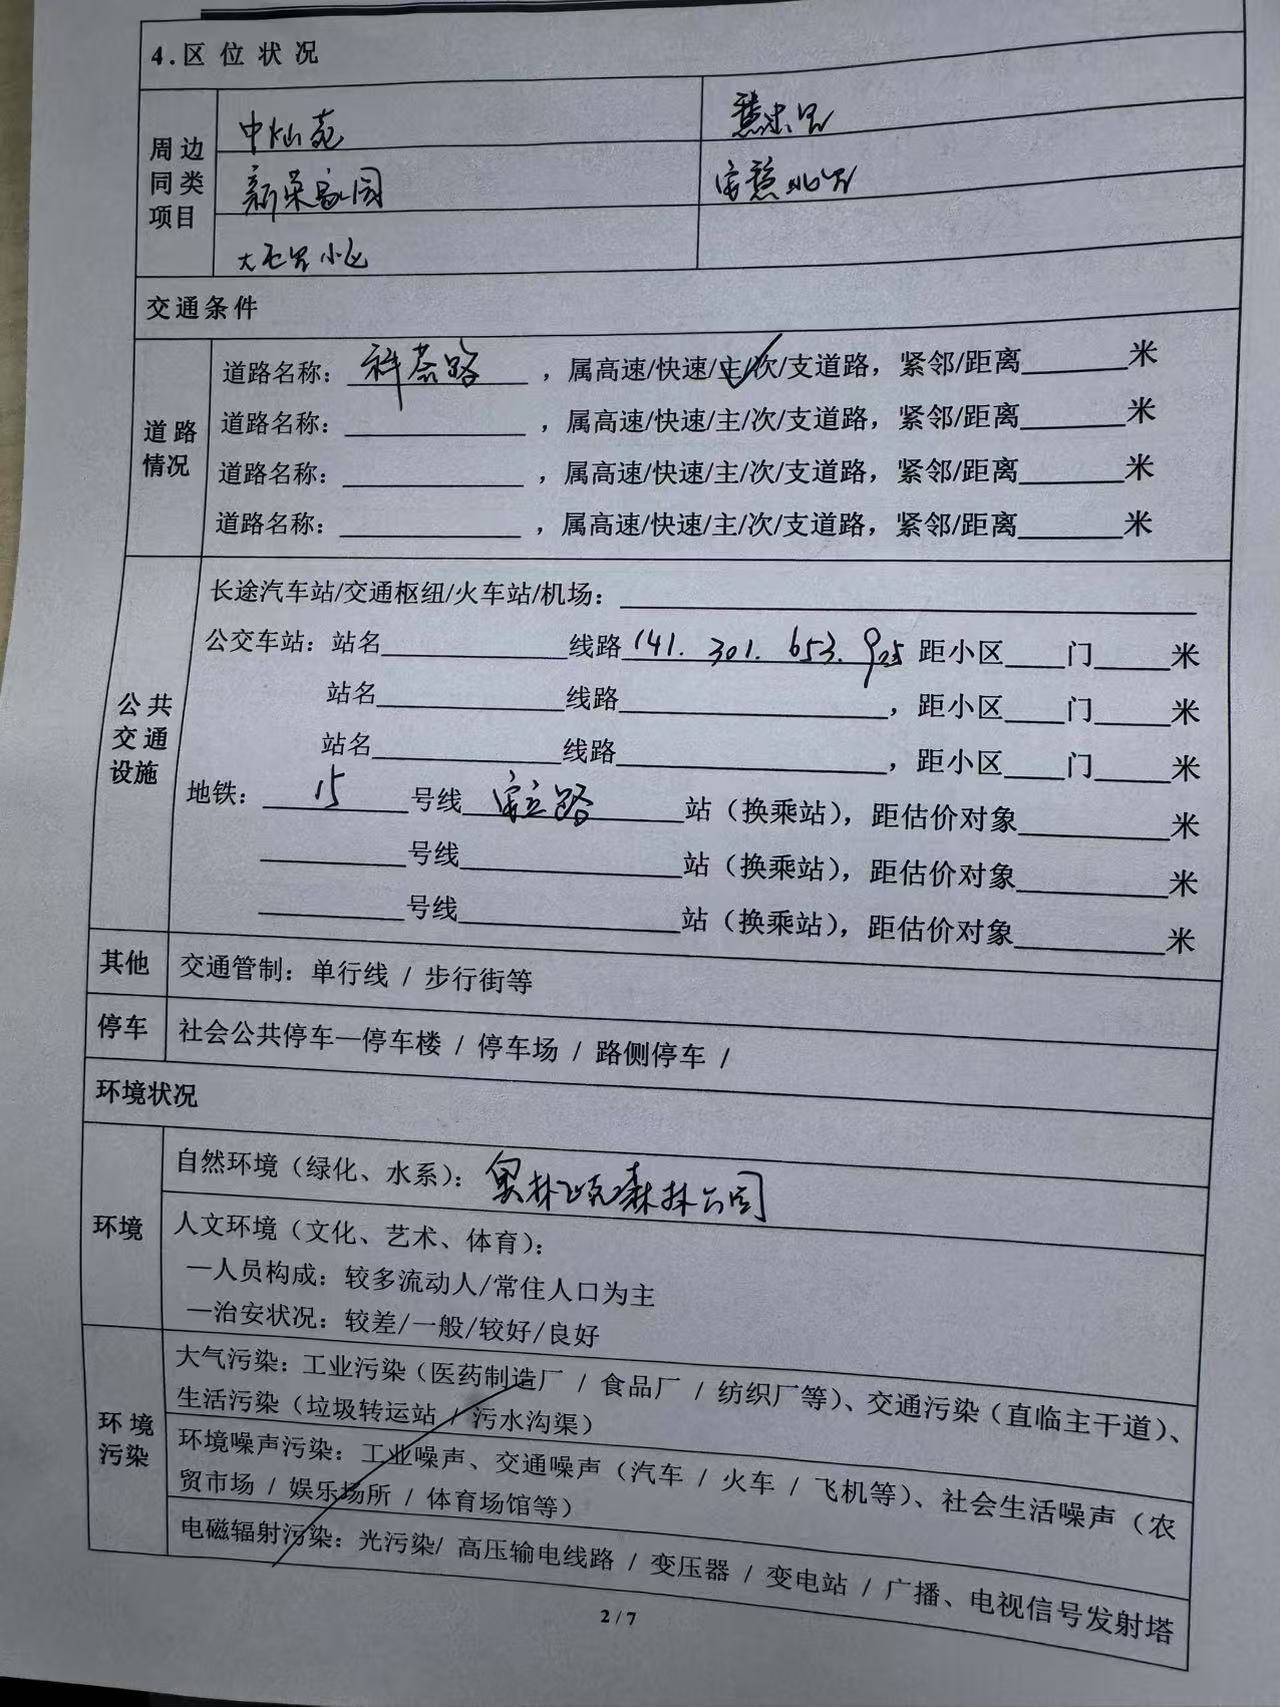 4.区位状况
周边同类项目
中灿苑
慧忠里
新荣家园
安慧北里
大屯里小区
交通条件
道路情况
道路名称：祥茶路，属高速/快速/主/次/支道路，紧邻/距离______米
道路名称：______，属高速/快速/主/次/支道路，紧邻/距离______米
道路名称：______，属高速/快速/主/次/支道路，紧邻/距离______米
道路名称：______，属高速/快速/主/次/支道路，紧邻/距离______米
公共交通设施
长途汽车站/交通枢纽/火车站/机场：______
公交车站：站名______线路141. 301. 653. 925 距小区____门____米
站名______线路______，距小区____门____米
站名______线路______，距小区____门____米
地铁：15号线安立路站（换乘站），距估价对象______米
______号线______站（换乘站），距估价对象______米
______号线______站（换乘站），距估价对象______米
其他 交通管制：单行线 / 步行街等
停车 社会公共停车—停车楼 / 停车场 / 路侧停车 /
环境状况
环境
自然环境（绿化、水系）：奥林匹克森林公园
人文环境（文化、艺术、体育）：
—人员构成：较多流动人/常住人口为主
—治安状况：较差/一般/较好/良好
环境污染
大气污染：工业污染（医药制造厂 / 食品厂 / 纺织厂等）、交通污染（直临主干道）、
生活污染（垃圾转运站 / 污水沟渠）
环境噪声污染：工业噪声、交通噪声（汽车 / 火车 / 飞机等）、社会生活噪声（农
贸市场 / 娱乐场所 / 体育场馆等）
电磁辐射污染：光污染/ 高压输电线路 / 变压器 / 变电站 / 广播、电视信号发射塔
2 / 7